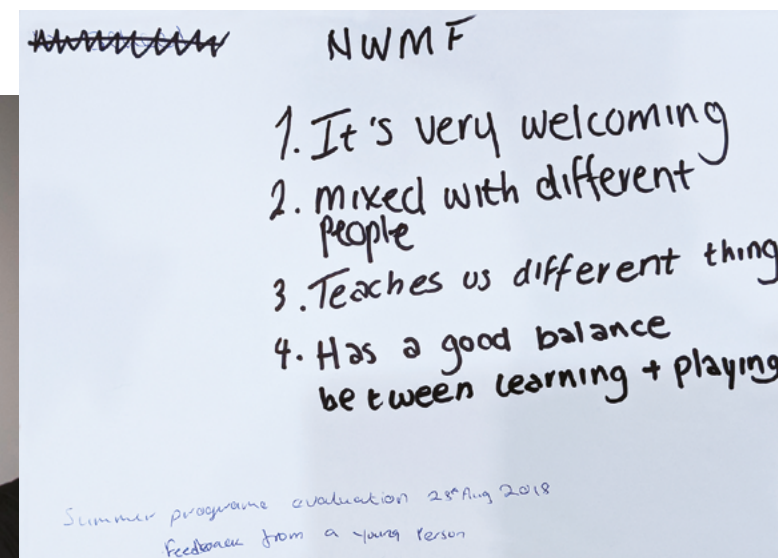 NWMF
1. It's very welcoming
2. mixed with different
people
3. Teaches us different thing
4. Has a good balance
between learning + playing
Summer programe evaluation 28th Aug 2018
Feedback from a young Person